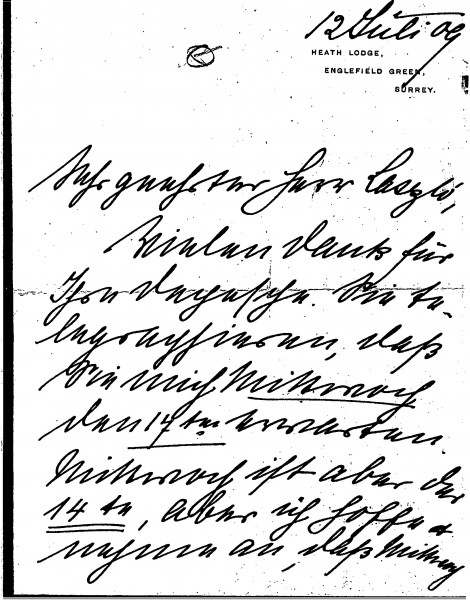 12 Juli 09
HEATH LODGE,
ENGLEFIELD GREEN,
SURREY.
Sehr geehrter Herr László,
Vielen Dank für
Ihre Depesche. Sie te-
legraphieren, daß
Sie mich Mittwoch
den 17ten erwarten.
Mittwoch ist aber der
14te, aber ich hoffe &
nehme an, daß Mittwoch